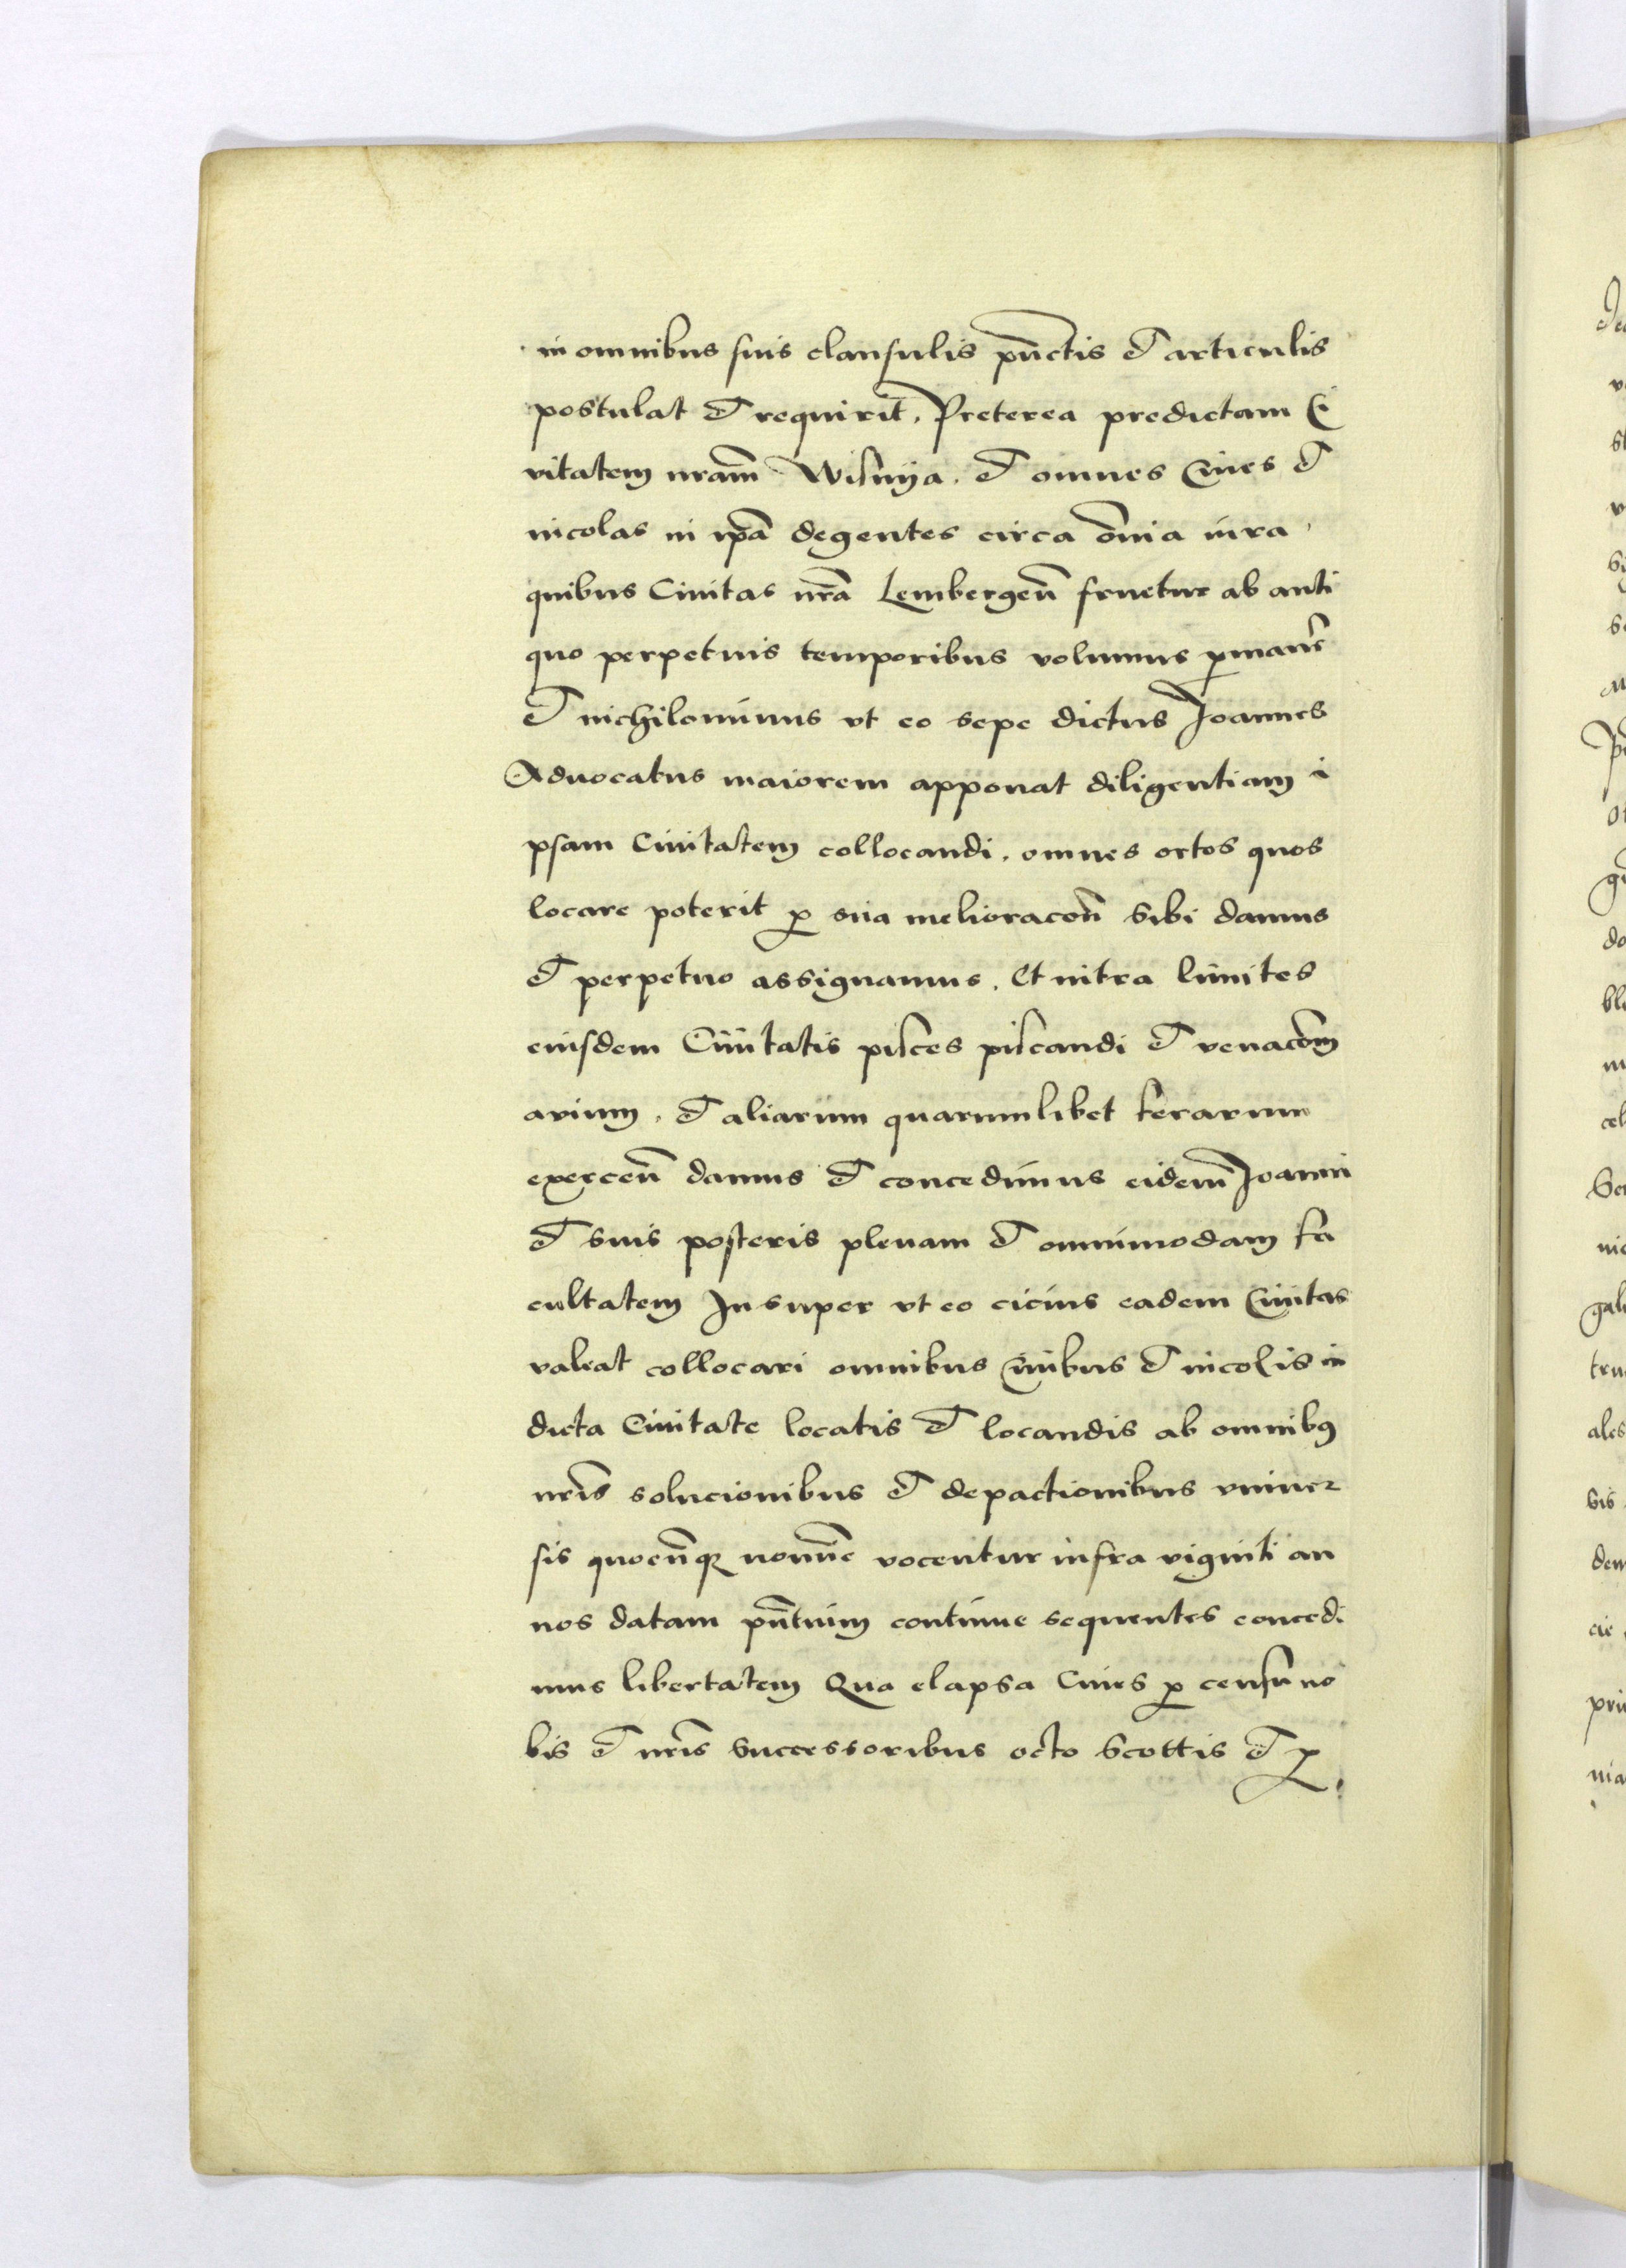 in omnibus suis clausulis pūctis et articulis
postulat et requirit. Preterea predictam Ci
vitatem nr̄am Wisnya. et omnes Ciues et
incolas in ip̄a degentes circa om̄ia iura
quibus Ciuitas nr̄a Lembergen̄ fruetur ab anti
quo perpetuis temporibus volumus ꝑmanēr
et nichilominus vt eo sepe dictus Joannes
Aduocatus maiorem apponat diligentiam i
psam Ciuitatem collocandi. omnes ortos quos
locare poterit ꝓ sua melioracōn̄ sibi damus
et perpetuo assignamus. Et intra limites
eiusdem Ciuitatis pisces piscandi et venacōm
avium. et aliarum quarumlibet ferarum
exercen̄ damus et concedimus eidem̄ Joanni
et suis posteris plenam et omnimodam fa
cultatem Insuper vt eo cicius eadem Ciuitas
valeat collocari omnibus Ciuibus et incolis in
dicta Ciuitate locatis et locandis ab omnibꝰ
nr̄is solucionibus et depactionibus vniuer
sis quocūqꝫ nomīe vocentur infra viginti an
nos datam pn̄tium continue sequentes concedi
mus libertatem Qua elapsa Ciues ꝓ censu no
bis et nr̄is successoribus octo Scottis et ꝓ